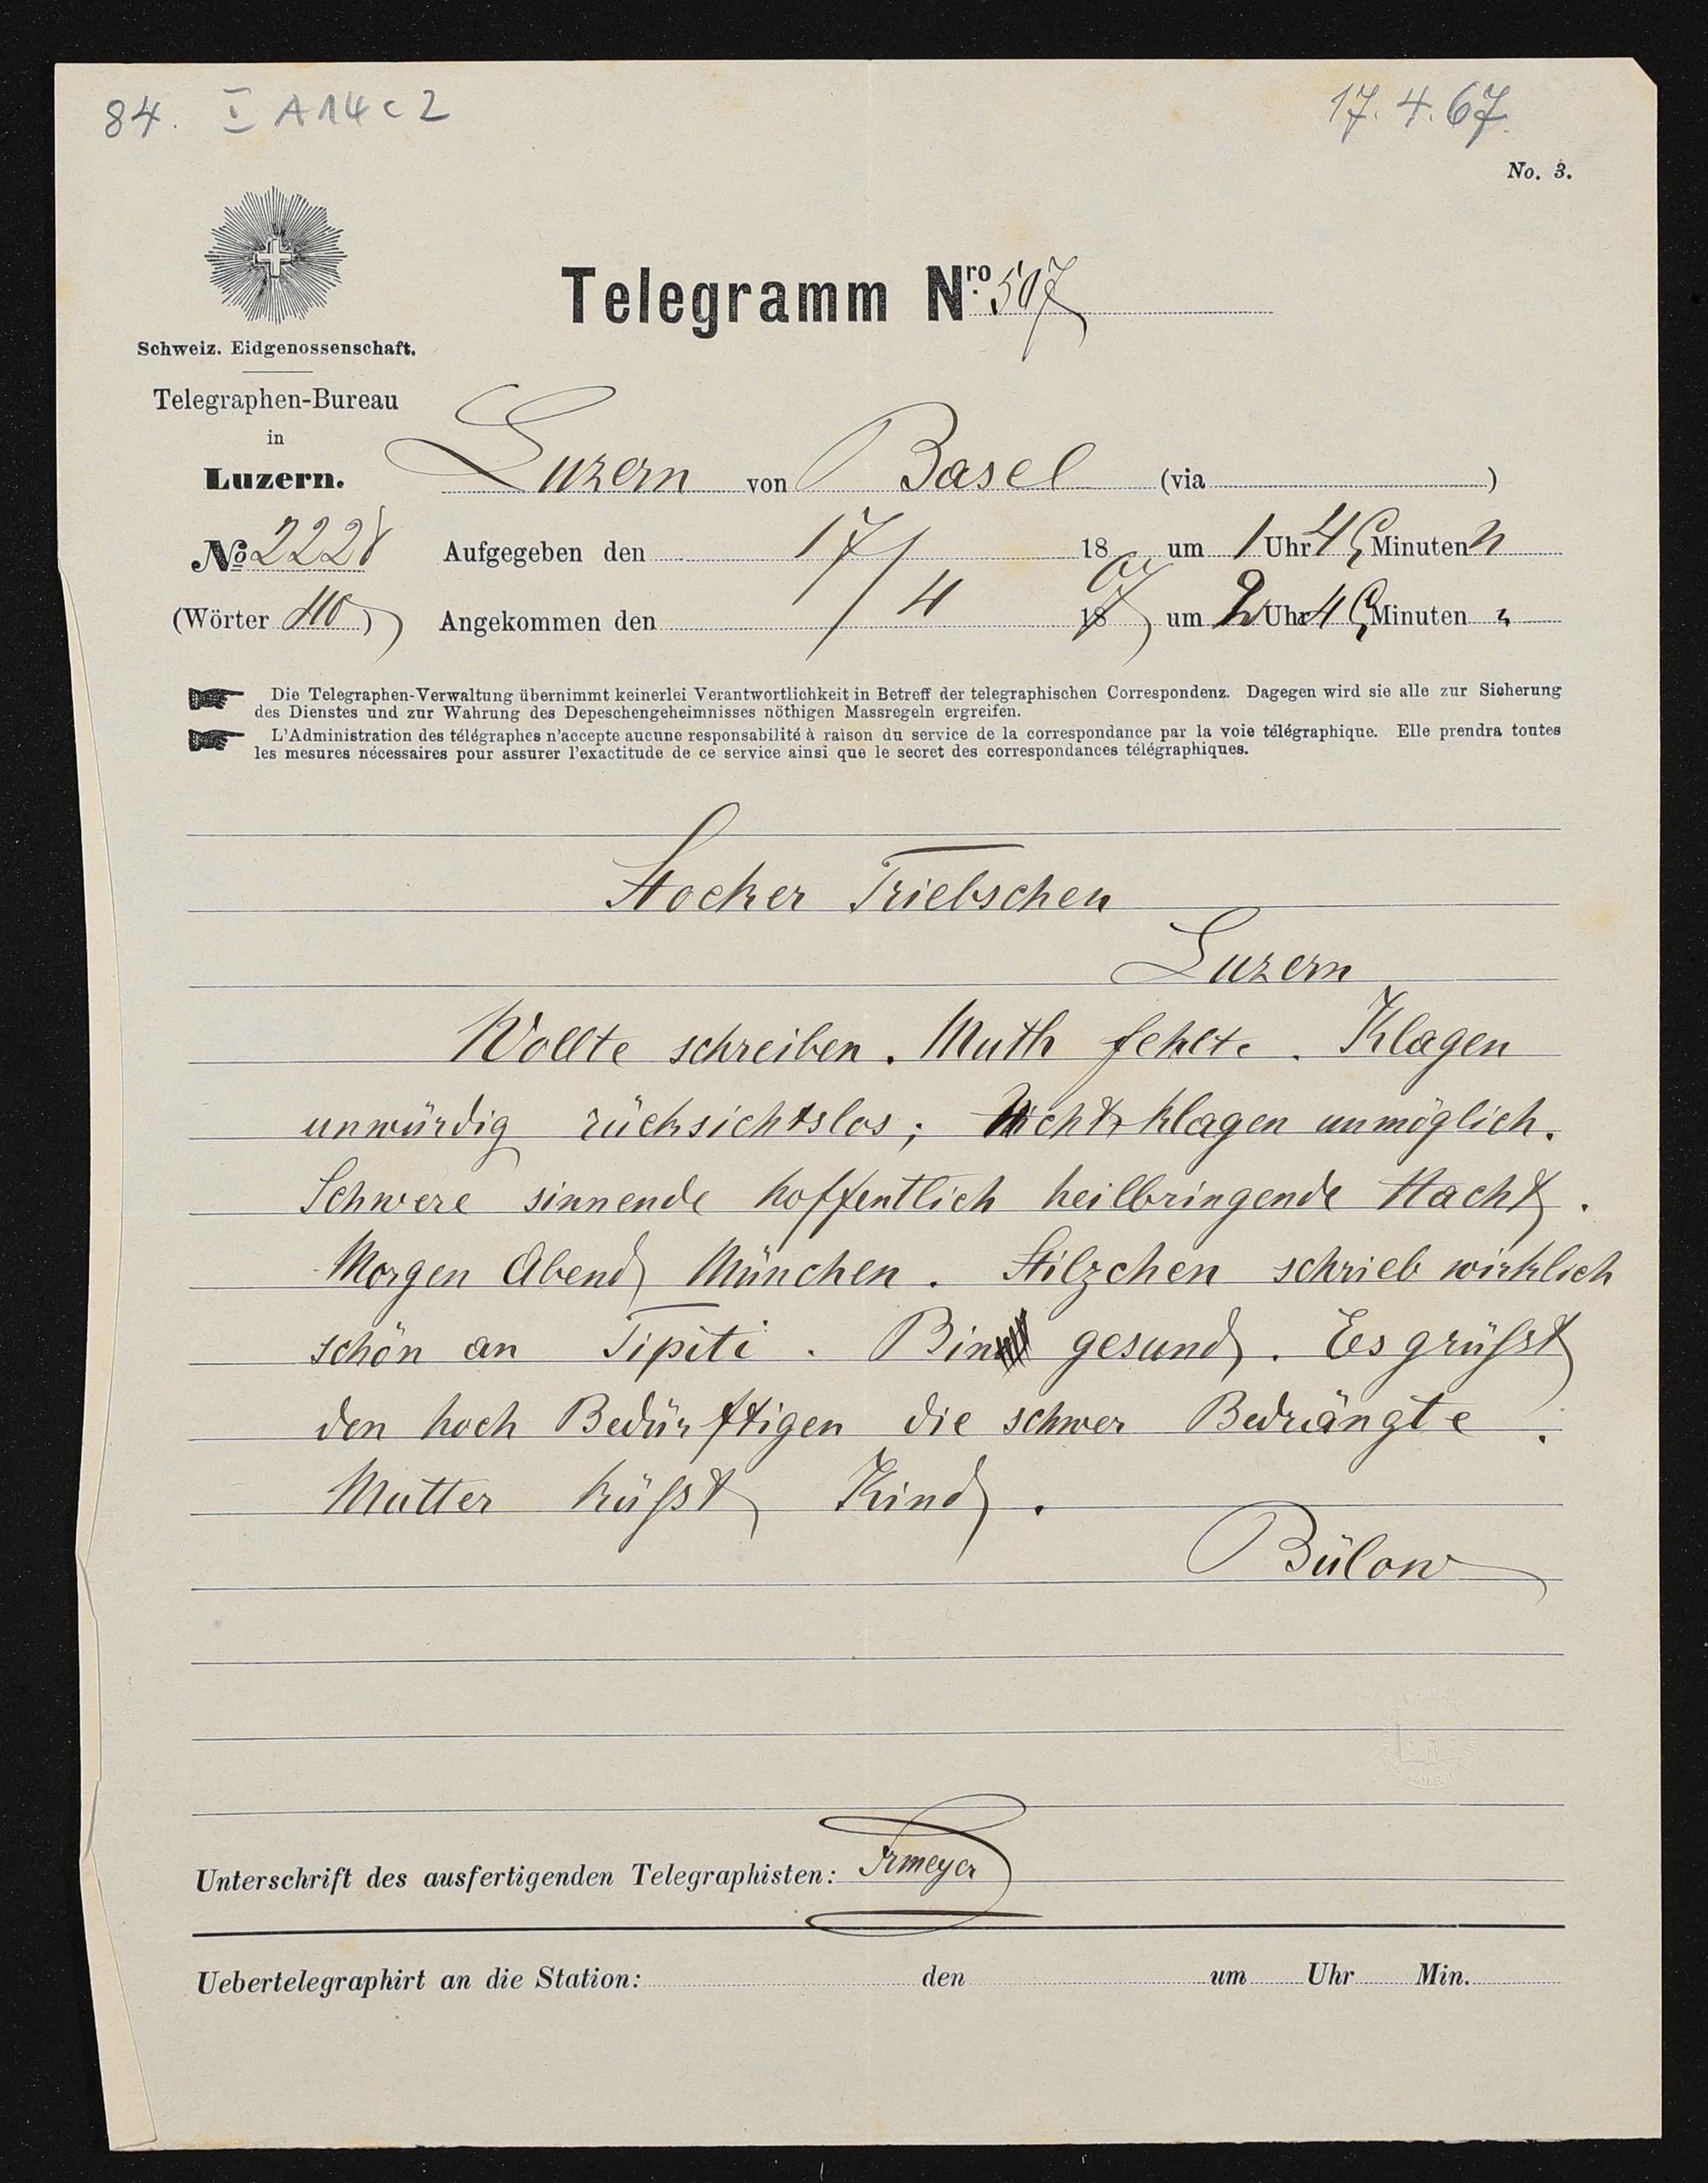 84. I A14 c 2
17. 4. 67.
No. 3.
Telegramm Nro. 507
Schweiz. Eidgenossenschaft.
Telegraphen-Bureau
in
Luzern.
Luzern von Basel (via )
No 2228 Aufgegeben den 17/ 18 um 1 Uhr 45 Minuten
(Wörter 40) Angekommen den /4 1867 um 2 Uhr 45 Minuten
Die Telegraphen-Verwaltung übernimmt keinerlei Verantwortlichkeit in Betreff der telegraphischen Correspondenz. Dagegen wird sie alle zur Sicherung
des Dienstes und zur Wahrung des Depeschengeheimnisses nöthigen Massregeln ergreifen.
L'Administration des télégraphes n'accepte aucune responsabilité à raison du service de la correspondance par la voie télégraphique. Elle prendra toutes
les mesures nécessaires pour assurer l'exactitude de ce service ainsi que le secret des correspondances télégraphiques.
Stocker Triebschen
Luzern
Wollte schreiben. Muth fehlte. Klagen
unwürdig rücksichtslos; Nicht klagen unmöglich.
Schwere sinnende hoffentlich heilbringende Nacht.
Morgen Abend München. Stilzchen schrieb wirklich
schön an Tipiti. Bin gesund. Es grüßt
den hoch Bedürftigen die schwer Bedrängte.
Mutter küßt Kind.
Bülow
Unterschrift des ausfertigenden Telegraphisten: Irmeyer
Uebertelegraphirt an die Station: den um Uhr Min.